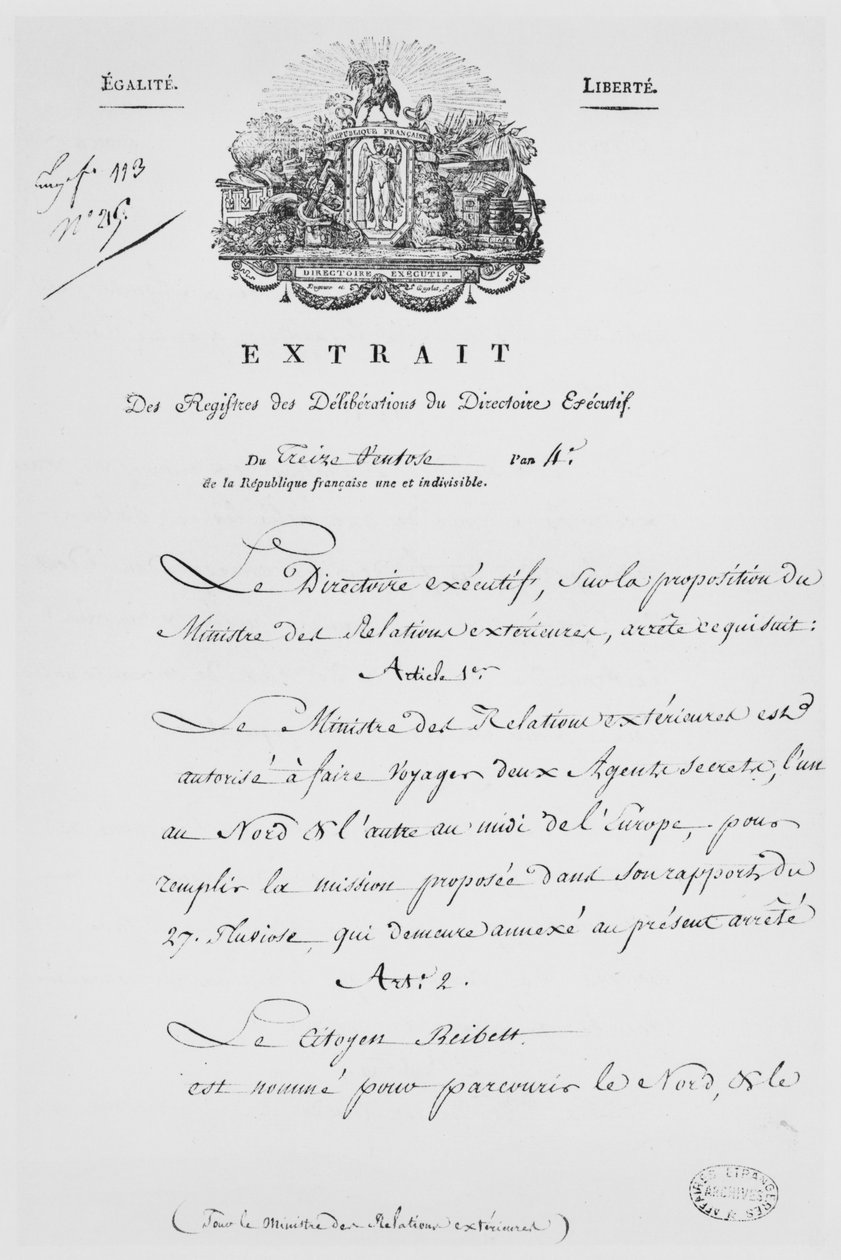 ÉGALITÉ.
LIBERTÉ.
113
N°
RÉPUBLIQUE FRANÇAISE
DIRECTOIRE EXÉCUTIF.
EXTRAIT
Des Registres des Délibérations du Directoire Exécutif.
Du Treize Ventose l'an 4.e
de la République française une et indivisible.
Le Directoire exécutif, sur la proposition du
Ministre des Relations extérieures, arrête ce qui suit :
Article 1er
Le Ministre des Relations extérieures est
autorisé à faire voyager deux Agents secrets, l'un
au Nord & l'autre au midi de l'Europe, pour
remplir la mission proposée dans son rapport du
27. Pluviose, qui demeure annexé au présent arrêté
Art. 2.
Le Citoyen Reibelt.
est nommé pour parcourir le Nord, & le
AFFAIRES ETRANGERES
ARCHIVES
(Pour le Ministre des Relations extérieures)